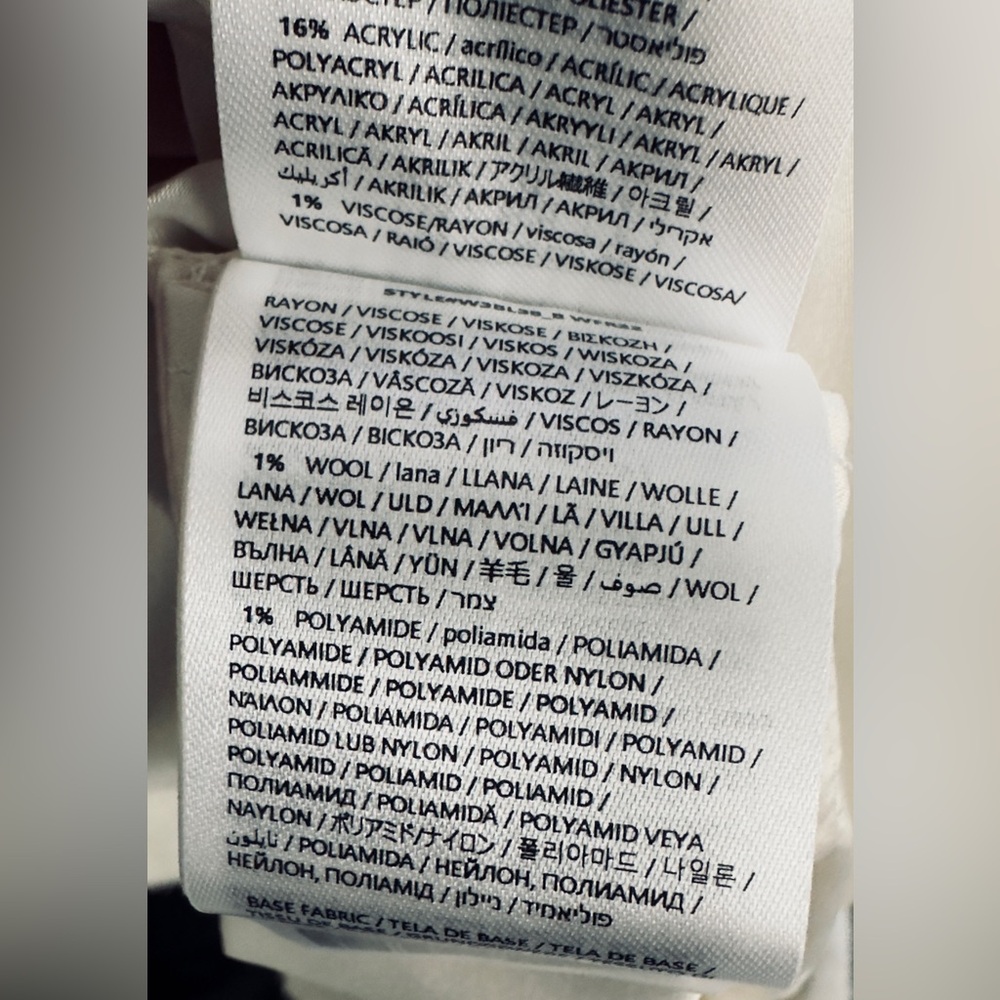 / ПОЛІЕСТЕР / פוליאסטר
16% ACRYLIC / acrílico / ACRÍLIC / ACRYLIQUE /
POLYACRYL / ACRILICA / ACRYL / AKRYL /
ΑΚΡΥΛΙΚΟ / ACRÍLICA / AKRYYLI / AKRYL / AKRYL /
ACRYL / AKRYL / AKRIL / AKRIL / АКРИЛ /
ACRILICĂ / AKRILIK / アクリル繊維 / 아크릴 /
أكريليك / AKRILIK / АКРИЛ / АКРИЛ / אקרילי
1% VISCOSE/RAYON / viscosa / rayón /
VISCOSA / RAIÓ / VISCOSE / VISKOSE / VISCOSA/
RAYON / VISCOSE / VISKOSE / ΒΙΣΚΟΖΗ /
VISCOSE / VISKOOSI / VISKOS / WISKOZA /
VISKÓZA / VISKÓZA / VISKOZA / VISZKÓZA /
ВИСКОЗА / VÂSCOZĂ / VISKOZ / レーヨン /
비스코스 레이온 / فسكوزي / VISCOS / RAYON /
ВИСКОЗА / ВІСКОЗА / ויסקוזה / ריון
1% WOOL / lana / LLANA / LAINE / WOLLE /
LANA / WOL / ULD / ΜΑΛΛΊ / LÃ / VILLA / ULL /
WEŁNA / VLNA / VLNA / VOLNA / GYAPJÚ /
ВЪЛНА / LÂNĂ / YÜN / 羊毛 / 울 / صوف / WOL /
ШЕРСТЬ / ШЕРСТЬ / צמר
1% POLYAMIDE / poliamida / POLIAMIDA /
POLYAMIDE / POLYAMID ODER NYLON /
POLIAMMIDE / POLYAMIDE / POLYAMID /
ΝΆΙΛΟΝ / POLIAMIDA / POLYAMIDI / POLYAMID /
POLIAMID LUB NYLON / POLYAMID / NYLON /
POLYAMID / POLIAMID / POLIAMID /
ПОЛИАМИД / POLIAMIDĂ / POLYAMID VEYA
NAYLON / ポリアミド/ナイロン / 폴리아마드 / 나일론 /
نايلون / POLIAMIDA / НЕЙЛОН, ПОЛИАМИД /
НЕЙЛОН, ПОЛІАМІД / פוליאמיד / ניילון
BASE FABRIC / TELA DE BASE / TELA DE BASE /
TISSU DE BASE /